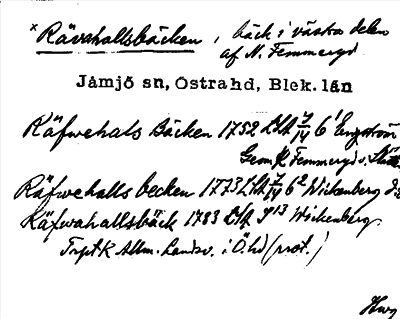 x Rävahallsbäcken, bäck i västra delen
af N. Femmeryd
Jämjö sn, Östrahd, Blek. län
Räfwehals Bäcken 1752 LSA 7/IV 6¹ Engström
Geom. K Femmeryd o.
Räfwehalls becken 1773 LSA 7/IV 6² Wickenberg
Räfwahallsbäck 1783 LSA J¹³ Wickenberg
Trpt K Allm. Landsv. i Ö.hd (prot.)
Hwg